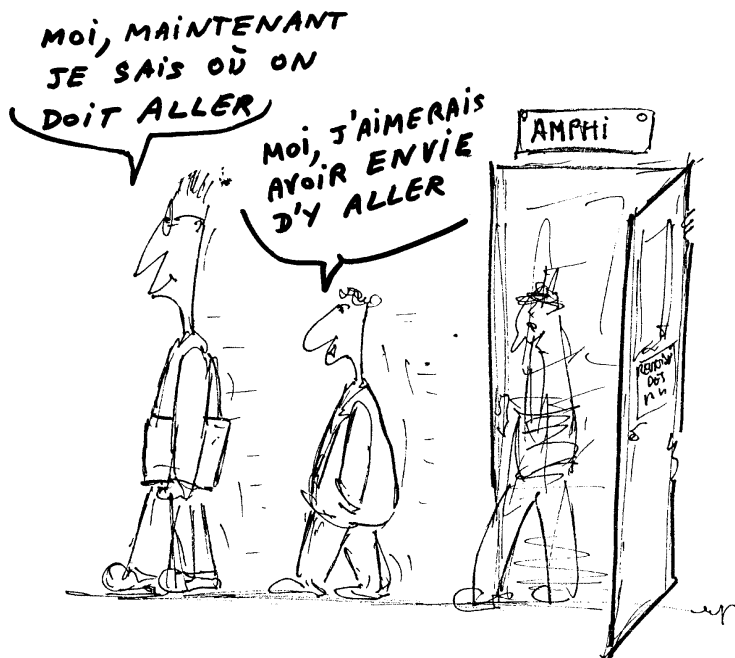 MOI, MAINTENANT
JE SAIS OÙ ON
DOIT ALLER
MOI, J'AIMERAIS
AVOIR ENVIE
D'Y ALLER
AMPHI